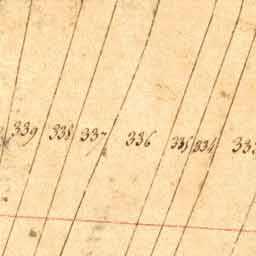 339 338 337 336 335 334